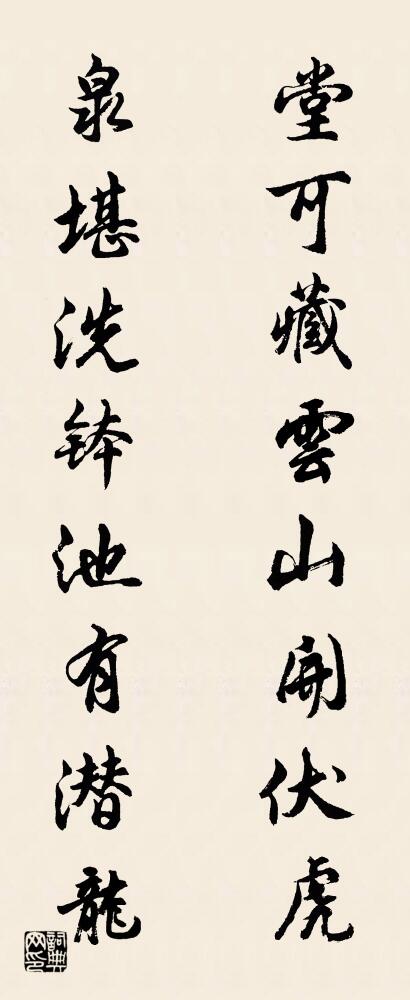 堂可藏雲山開伏虎
泉堪洗鉢池有潜龍
詞典網印